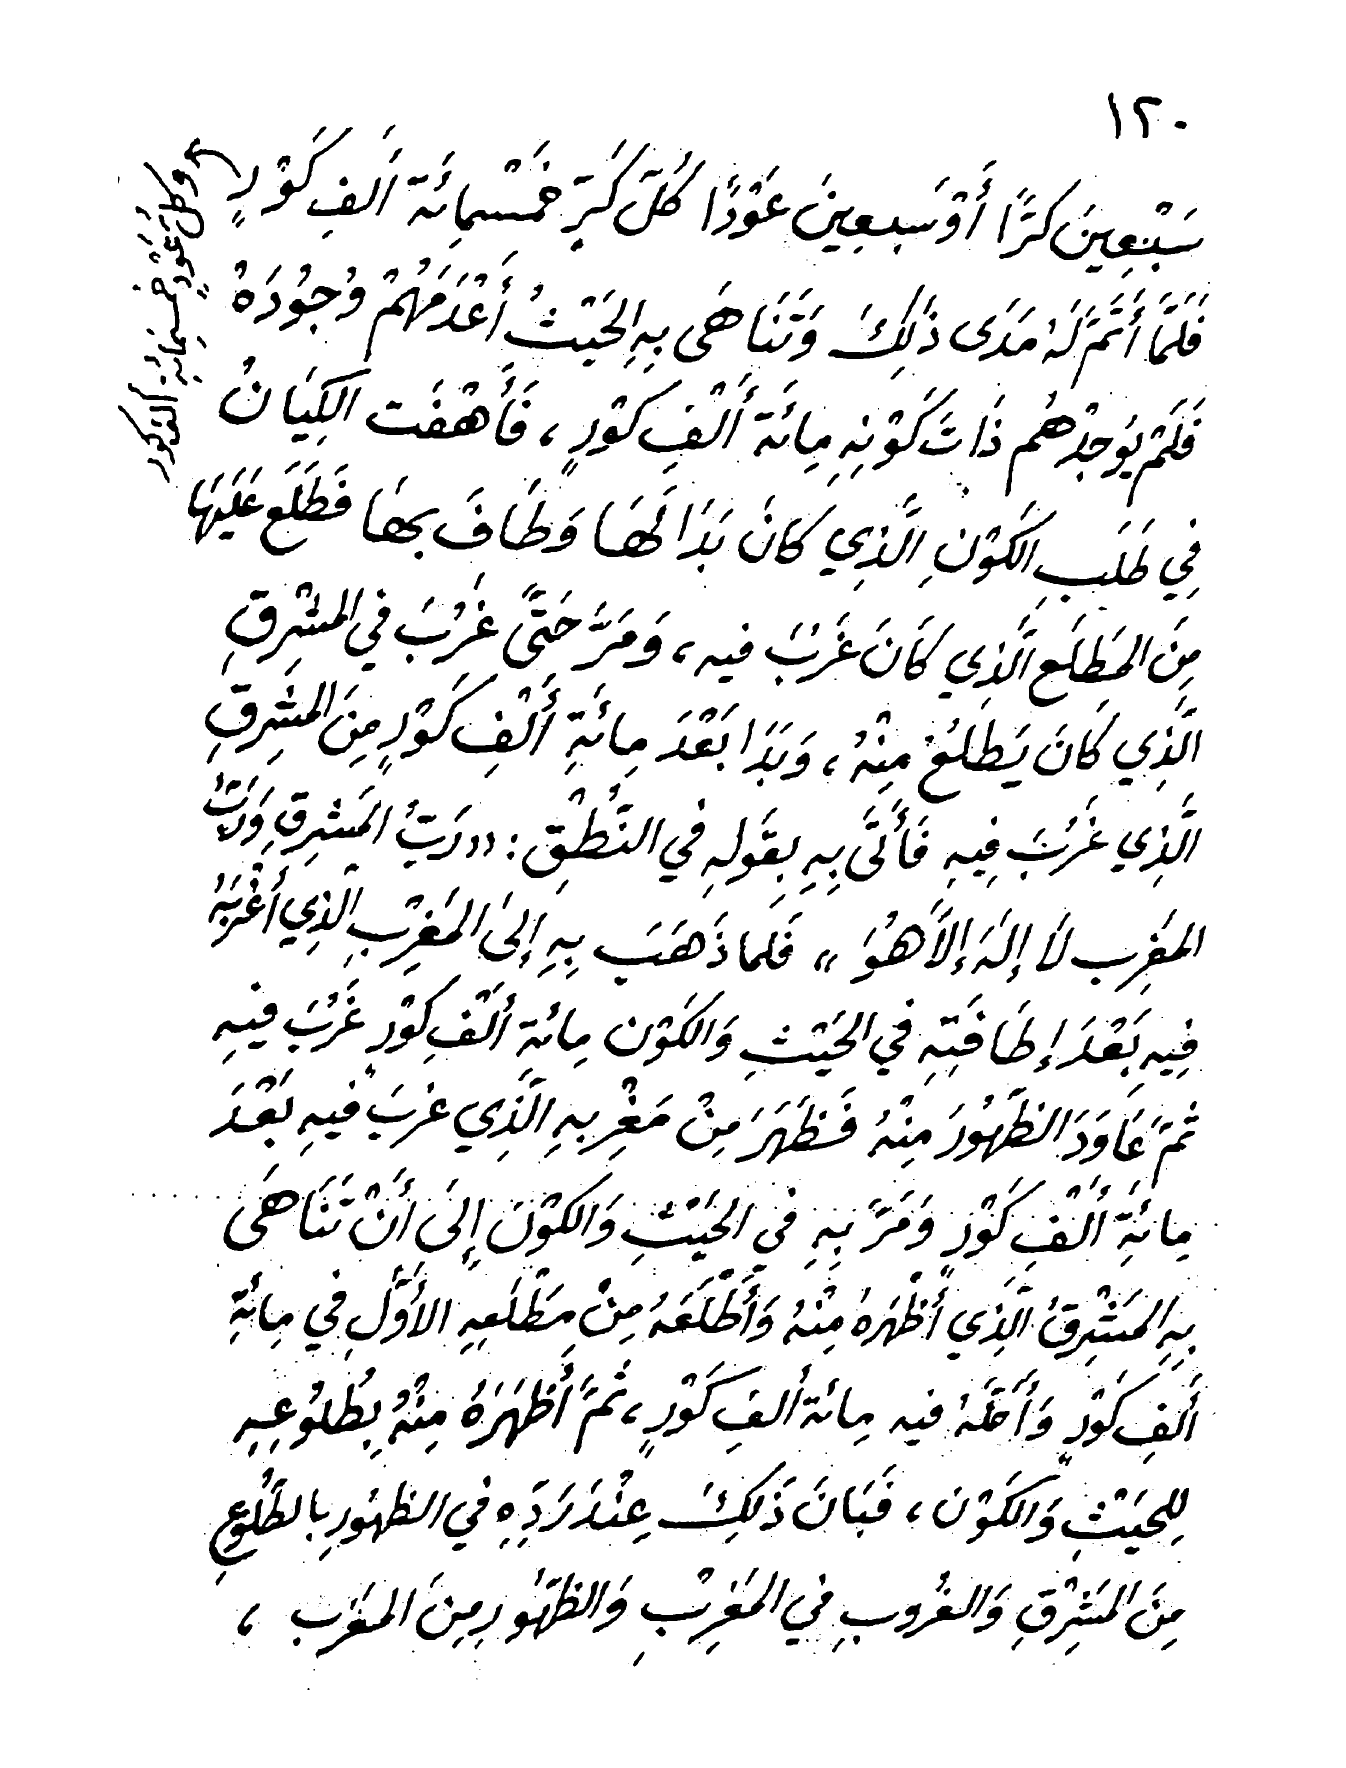 ١٢٠
سَبْعِينَ كَرًّا أَوْ سَبعِينَ عَوْدًا كُلّ كَرٍّ خَمْسمِائَة أَلفِ كَوْرٍ
وكلّ عَوْدٍ خمسمائةِ ألف كور
فَلَمَّا أَتَمَّ لَهُ مَدَى ذَلِكَ وَتَنَاهَى بِهِ الحَيْثُ أَعْدَمَهُمْ وُجُودَهُ
فَلَمْ يُوجِدْهُم ذَاتَ كَوْنِهِ مِائَةَ أَلْفِ كَوْرٍ ، فَأَهْفَت الكِيَانُ
فِي طَلَبِ الكَوْنِ الَّذِي كانَ بَدَا لَهَا وَطَافَ بِهَا فَطَلَع عَلَيهَا
مِنَ المَطلَعِ الَّذِي كَانَ غَرُبَ فيه ، وَمَرَّ حَتَّى غَرُبَ في المَشرِقِ
الَّذِي كَانَ يَطلَعُ مِنْهُ ، وَبَدَا بَعْدَ مِائَةِ أَلْفِ كَوْرٍ مِنَ المَشرِقِ
الَّذِي غَرُبَ فِيهِ فَأَتَى بِهِ بِقَولهِ في النُّطْقِ : « رَبُّ المَشرِقِ وَرَبُّ
المغرِب لاَ إِلَهَ إِلاَّ هُوَ » فَلَما ذَهَبَ بِهِ إِلَى المَغرِبِ الَّذِي أَغْرَبَهُ
فِيهِ بَعْدَ إِطَافَتِهِ في الحَيْثِ وَالكَوْن مِائَةِ أَلْفِ كَوْرٍ غَرُبَ فيهِ
ثُمَّ عَاوَدَ الظُهُورَ مِنْهُ فَظَهَرَ مِنْ مَغْرِبهِ الَّذِي غَربَ فيهِ بَعْدَ
مِائَةِ أَلْفِ كَوْرٍ وَمَرَّ بِهِ في الحَيْثِ وَالكَوْنَ إِلَى أَنْ تَنَاهَى
بِهِ المَشْرِقُ الَّذِي أَظْهَرَهُ مِنْهُ وَأَطْلَعَهُ مِنْ مَطْلَعِهِ الأَوَّلِ في مِائَةِ
أَلفِ كَوْرٍ وَأَحَلَّهُ فيه مِائَة أَلفِ كَوْرٍ ، ثُمَّ أَظهَرَهُ مِنْهُ بِطُلوُعِهِ
لِلحَيْثِ وَالكَوْن ، فَبَانَ ذَلِكَ عِنْدَ رَدِّهِ في الظهُورِ بالطُلُوعِ
مِنَ المَشْرِقِ وَالغُروبِ في المَغرِبِ وَالظهُورِ مِنَ المغَرب ،